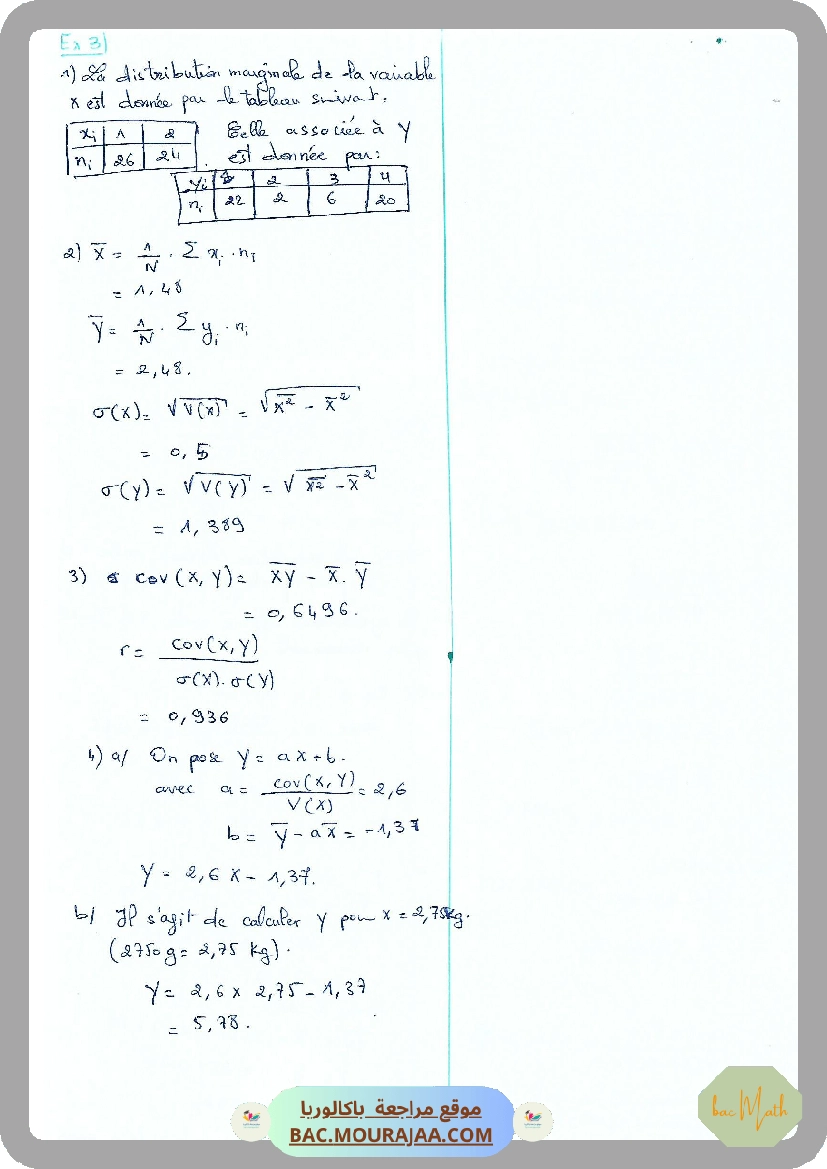 Ex 3)
1) La distribution marginale de la variable
X est donnée par le tableau suivant.
xi 1 2
ni 26 24
Celle associée à Y
est donnée par:
yi 1 2 3 4
ni 22 2 6 20
2) X̄ = 1/N . Σ xi . ni
= 1,48
Ȳ = 1/N . Σ yi . ni
= 2,48.
σ(X) = √V(X) = √(x̄² - x̄²)
= 0,5
σ(Y) = √V(Y) = √(x̄² - x̄²)
= 1,389
3) cov(X, Y) = X̄Ȳ - X̄ . Ȳ
= 0,6496.
r = cov(X,Y) / σ(X). σ(Y)
= 0,936
4) a/ On pose Y = aX + b.
avec a = cov(X, Y) / V(X) = 2,6
b = Ȳ - aX̄ = -1,37
Y = 2,6 X - 1,37.
b/ Il s'agit de calculer Y pour X = 2,75kg.
(2750g = 2,75 kg).
Y = 2,6 x 2,75 - 1,37
= 5,78.
موقع مراجعة باكالوريا
BAC.MOURAJAA.COM
bac Math